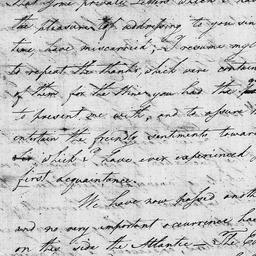 that some private Letters which I ha
the pleasure of addressing to you sin
time, have miscarried; I resume my
to repeat the thanks, which were contain
of them for the Wine you had the
to present me with, and to assure
entertain the friendly sentiments towar
which I have ever experienced
first acquaintance.
We have now passed anoth
and no very important occurrence ha
on this side the Atlantic — The